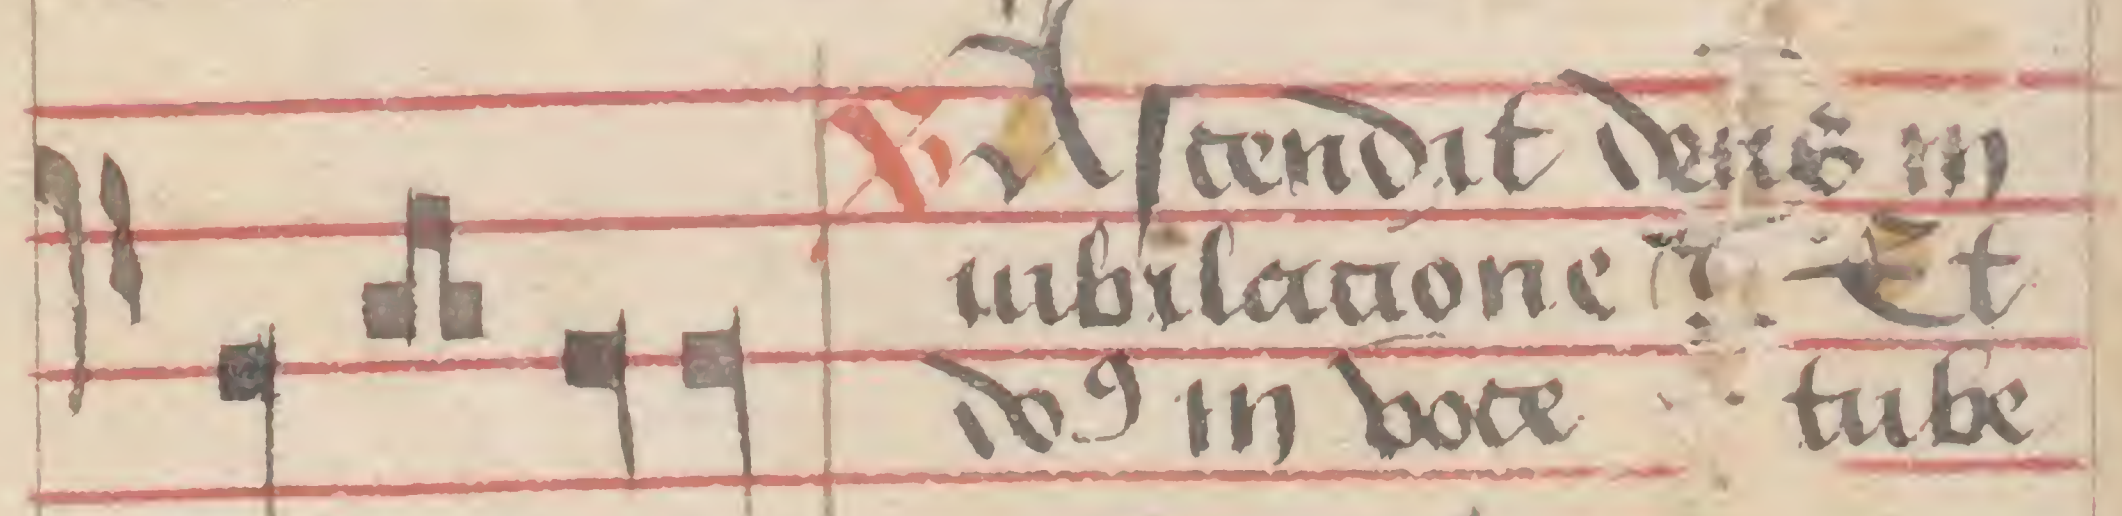 ℣ Ascendit deus in
iubilatione Et
do⁹ in voce tube